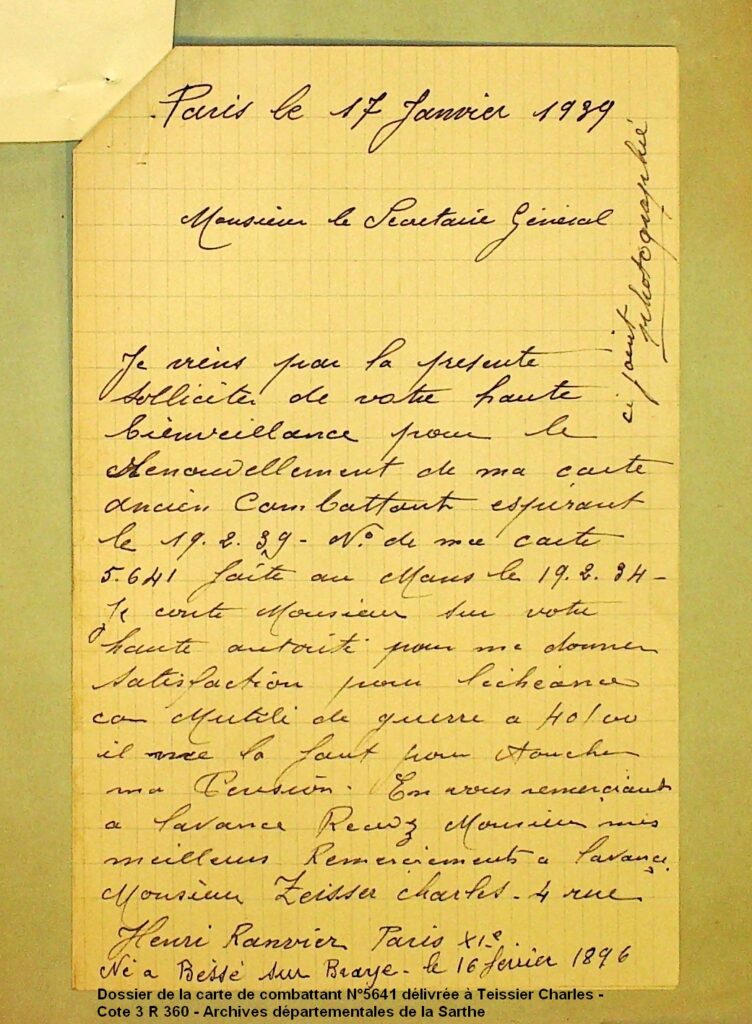 Paris le 17 Janvier 1939
ci joint
photographié
Monsieur le Secretaire Géneral
Je viens par la presente
solliciter de votre haute
bienveillance pour le
Renouvellement de ma carte
ancien Combattant espirant
le 19.2.39 - N° de ma carte
5.641 faite au Mans le 19.2.34 -
Je conte Monsieur sur votre
haute autorité pour me donner
satisfaction pour lécheance
car Mutilé de guerre a 40/00
il me la faut pour toucher
ma Pension. En vous remerciant
a lavance Recevez Monsieur mes
meilleurs Remerciements a lavance
Monsieur Zeisser Charles - 4 rue
Henri Ranvier Paris XIe
Né a Bessé sur Braye - le 16 fevrier 1896
Dossier de la carte de combattant N°5641 délivrée à Teissier Charles -
Cote 3 R 360 - Archives départementales de la Sarthe